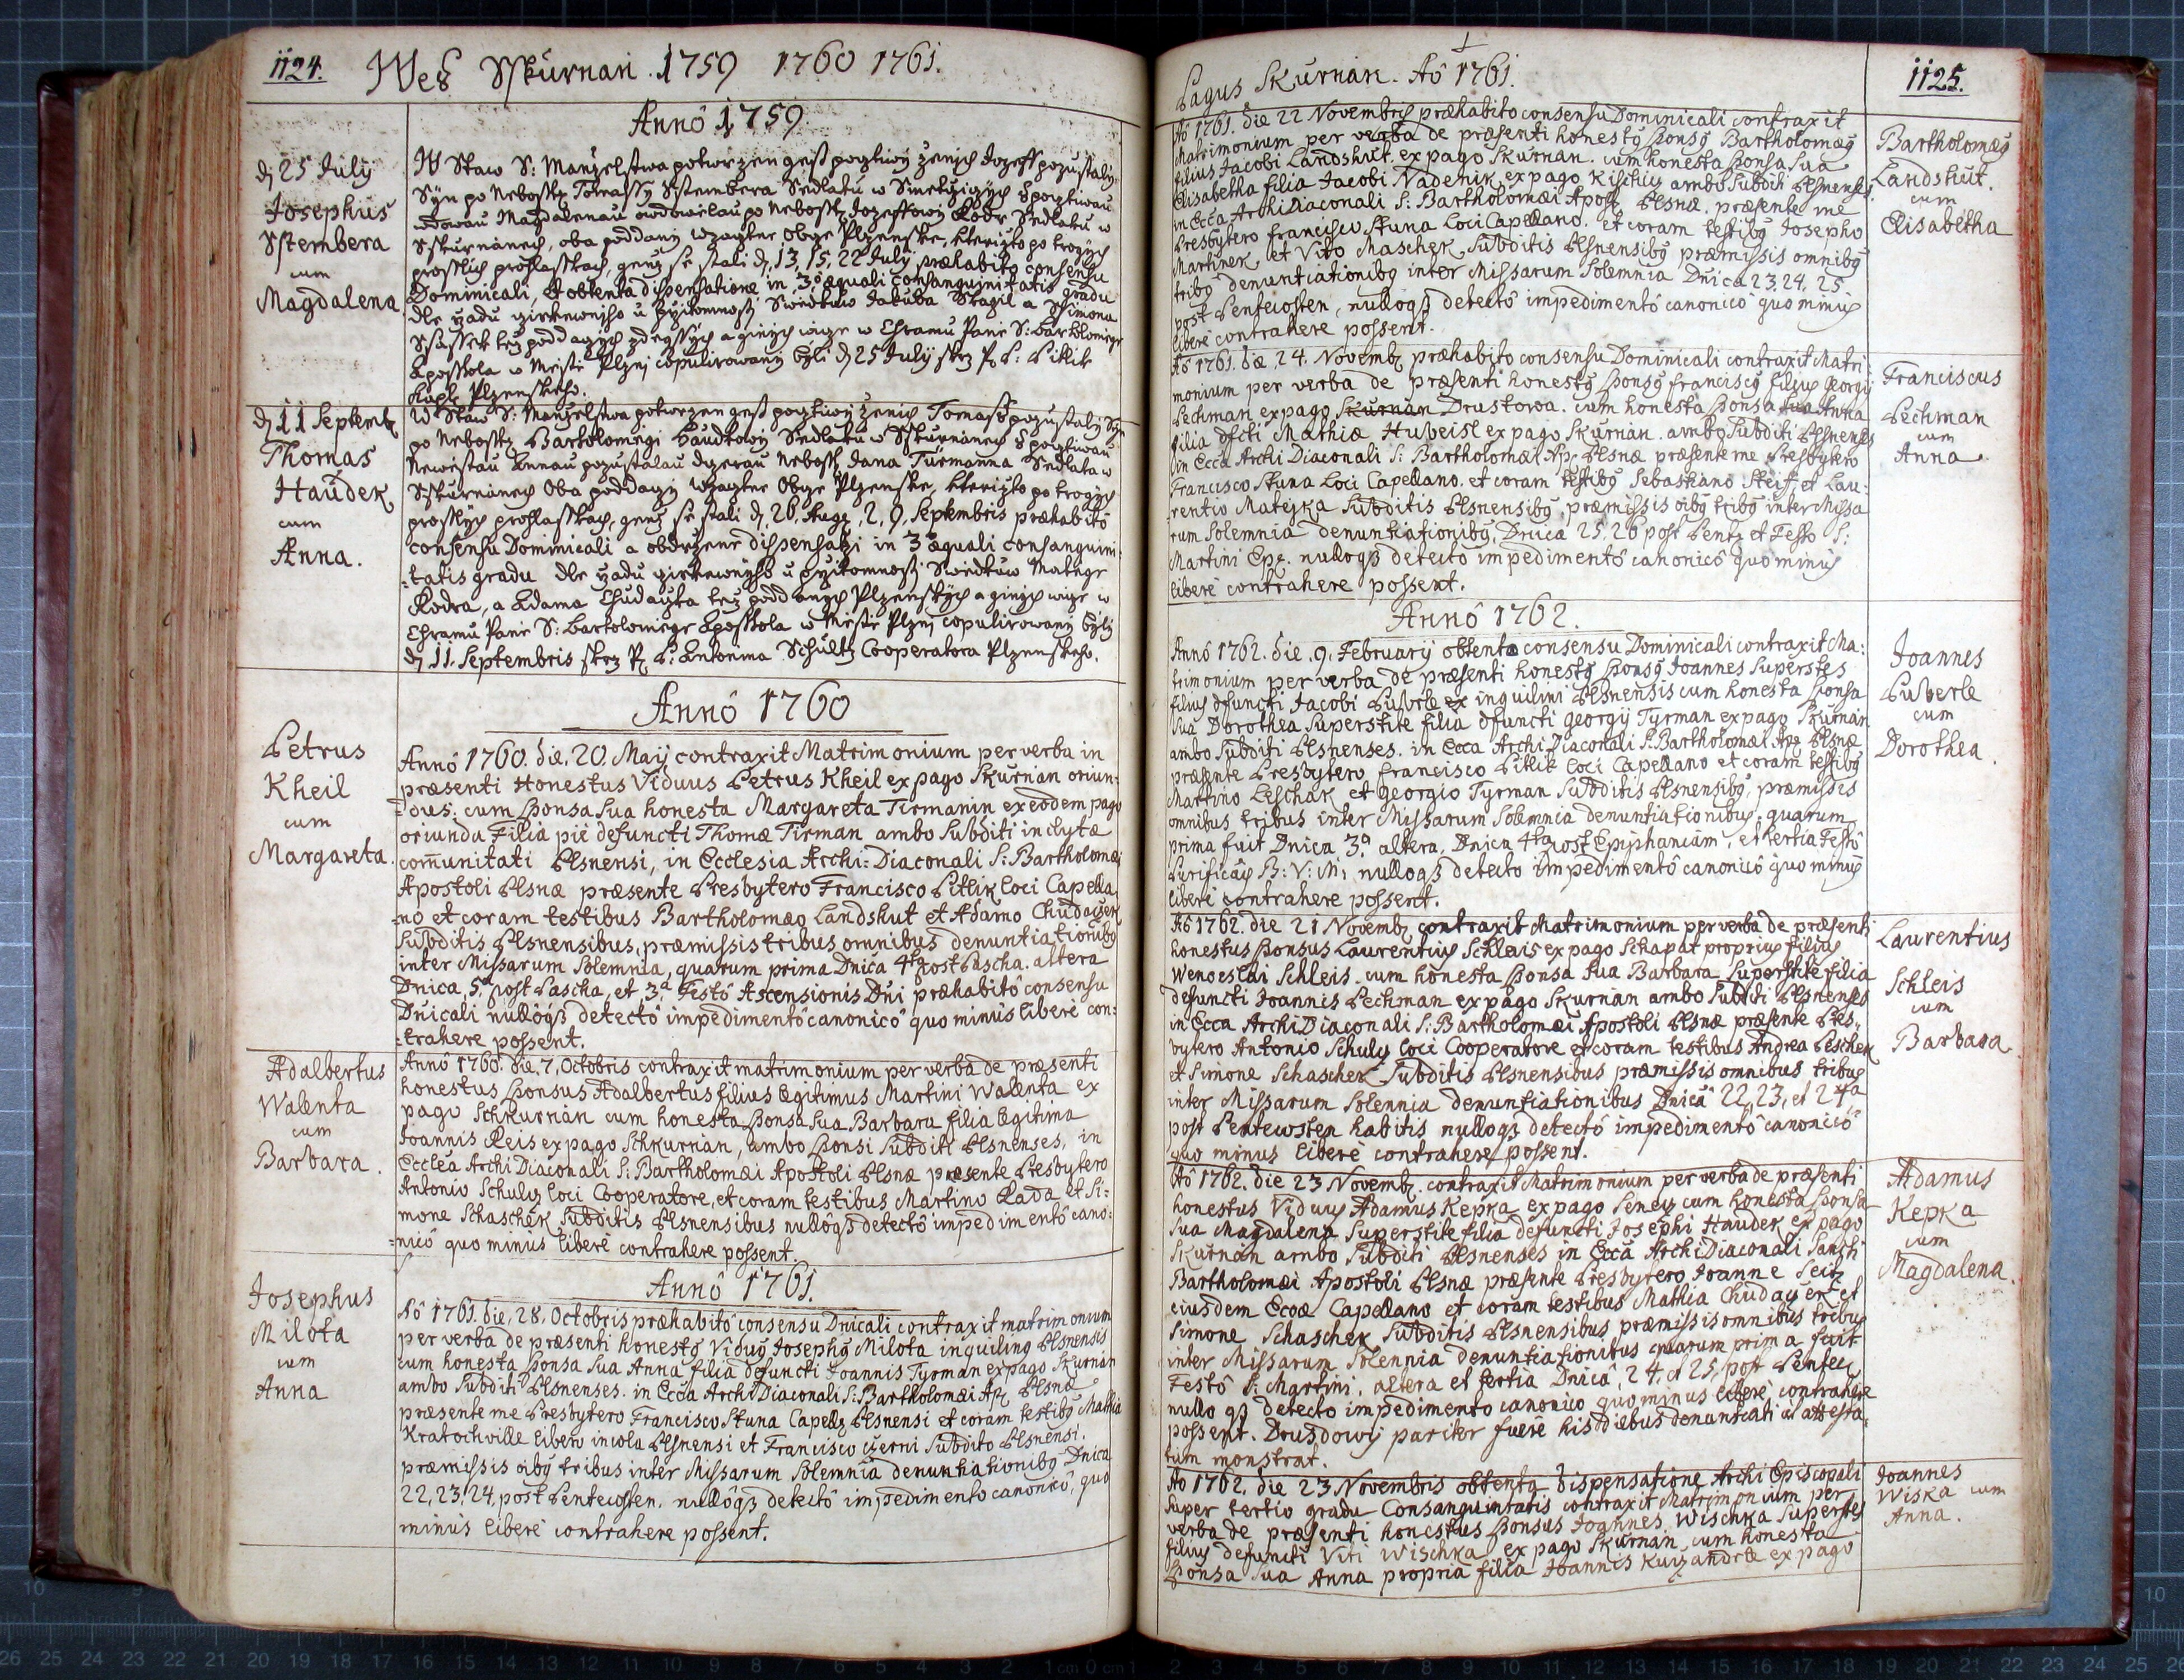 1124.
Wes Sskurnan. 1759 1760 1761.
Annô 1759.
dj 25 July
Josephus
Sstembera
cum
Magdalena
W Staw S: Manzelstwa potwrzen gest pocztiwy Zenich Jozeff pozustaly
Syn po Nebosstj Tomassy Sstembera Sedlaku w
wdowau Magdalenau owdowělau po Nebosstj Jozeffowi Kodr Sedlaku w
Sskurnanech, oba poddany wzactne Obcze Plzenske, kterizto po trogych
prosslich prohlasskach, genz se stali dj 13, 15, 22 July præhabito consensu
Dominicali, et obtenta dispensatione in 3º æquali consanguinitatis gradu
dle rzadu cyrkewnjho u przitomnosti Swedkuw Jakuba Stagil a Ssimona
w Chramu Panie S: Bartolomege
Aposstola w Miestie Plznj copulirowany byli dj 25 July skrz P: Pittlik
Kapl: Plzenskeho.
dj 11 Septemb
Thomas
Haudek
cum
Anna.
W Staw S: Manzelstwa potwrzen gest pocztiwy Zenich Tomass pozustaly Syn
po Nebosstj Bartolomegi Haudkowi Sedlaku w Sskurnanech s pocztiwau
Newiestau Annau pozustalau dcerau Nebosstj Jana Turmanna Sedlaka w
Sskurnanech Oba poddany wzactne Obcze Plzenske, kterizto po trogych
prosslych prohlasskach, genz se stali dj 26. Aug, 2, 9, Septembris præhabitô
consensu Dominicali a obdrzene dispensatzi in 3 æquali consanguini-
-tatis gradu dle rzadu cyrkewnyho u przitomnosti Swedkuw Matege
Kodra, a Adama Chudaczka tez poddanych Plzenskych a ginych wice w
Chramu Panie S: Bartolomiege Aposstola w Miestie Plznj copulirowany byli
dj 11. Septembris skrz P: Antonina Schultz Cooperatora Plzenskeho.
Annô 1760
Petrus
Kheil
cum
Margareta.
Annô 1760. die. 20. Maij contraxit Matrimonium per verba in
præsenti Honestus Viduus Petrus Kheil ex pago Skurnan oriun-
-dus. cum sponsa sua honesta Margareta Tirmanin ex eodem pago
oriunda Filia pië defuncti Thomæ Tirman ambo Subditi inclytæ
comunitati Plsnensi, in Ecclesia Archi-Diaconali S: Bartholomæi
Apostoli Plsnæ præsente Presbytero Francisco Pitlik loci Capella-
-nô et coram testibus Bartholomæo Landshut et Adamo Chudaczek
Subditis Plsnensibus, præmissis tribus omnibus denuntiationibus
inter Missarum Solemnia, quarum prima Dnica 4ta post Pascha. altera
Dnica, 5ta post Pascha, et 3a Festô Ascensionis Dni præhabitô consensu
Dnicali nullôqz detectô impedimentô canonicô quo minùs liberè con-
-trahere possent.
Adalbertus
Walenta
cum
Barbara.
Annô 1760. die. 7. Octobris contraxit matrimonium per verba de præsenti
honestus sponsus Adalbertus filius legitimus Martini Walenta ex
pago Schkurnan cum honesta sponsa sua Barbara filia legitima
Joannis Reis ex pago Schkurnan, ambo sponsi Subditi Plsnenses, in
Ecclea Archi Diaconali S: Bartholomæi Apostoli Plsnæ præsente Presbytero
Antonio Schulz loci Cooperatore, et coram testibus Martino Rada et Si-
mone Schaschek Subditis Plsnensibus nullôqz detectô impedimentô cano-
-nicô quo minus liberè contrahere possent.
Annô 1761.
Josephus
Milota
cum
Anna
Aô 1761. die. 28. Octobris præhabitô consensu Dnicali contraxit matrimonium
per verba de præsenti honestg Vidug Josephg Milota inquiling Plsnensis
cum honesta sponsa sua Anna filia defuncti Joannis Tyrman ex pago Skurnan
ambo Subditi Plsnenses. in Ecca Archi Diaconali S: Bartholomæi Ap: Plsnæ
præsente me Presbytero Francisco Skuna Capell: Plsnensi et coram testibg Mathia
Kratochville libero incola Plsnensi et Francisco czerni Subdito Plsnensi.
præmissis oibg tribus inter Missarum Solemnia denuntiationibg Dnica
22, 23, 24, post Pentecosten. nullôqz detectô impedimento canonicô, quo
minùs liberè contrahere possent.
Pagus Skurnan. Aô 1761.
1125.
Aô 1761. die 22 Novembris præhabito consensu Dominicali contraxit
Matrimonium per verba de præsenti honestg sponsg Bartholomæg
filius Jacobi Landshut. ex pago Skurnan. cum honesta sponsa sua
Elisabetha filia Jacobi Nadenik, ex pago Kischitz ambo Subditi Plsnenses
in Ecca Archidiaconali S: Bartholomæi Apost: Plsnæ. præsente me
Presbytero Francisco Skuna Loci Capellano. et coram testibg Josepho
Martinek et Vito Maschek Subditis Plsnensibg præmissis omnibg
tribg denuntiationibg inter Missarum Solemnia Dnica 23, 24, 25
post Pentecosten, nulloqz detectô impedimentô canonicô quo minus
liberè contrahere possent.
Bartholomæg
Landshut.
cum
Elisabetha
Aô 1761. die 24. Novemb: præhabito consensu Dominicali contraxit Matri-
monium per verba de præsenti honestg sponsg Franciscg filius Georgij
Pechman ex pago Skurnan Drustowa. cum honesta sponsa sua Anna
filia dfcti Mathiæ Hubeisl ex pago Skurnan. ambo Subditi Plsnenses
in Ecca Archi Diaconali S: Bartholomæi Ap: Plsnæ præsente me Presbytero
Francisco Skuna Loci Capellano. et coram testibg Sebastiano Steif et Lau-
-rentio Matejka Subditis Plsnensibg, præmissis oibg tribg inter Missa
rum Solemnia denuntiationibg, Dnica 25. 26 post Pent: et Festo S:
Martini Epi. nulloqz detecto impedimentô canonicô quo minus
liberè contrahere possent.
Franciscus
Pechman
cum
Anna
Annô 1762.
Annô 1762. die. 9. February obtento consensu Dominicali contraxit Ma-
trimonium per verba de præsenti honestg sponsg Joannes Superstes
filius dfuncti Jacobi Puberle ex inquilini Plsnensis cum honesta sponsa
sua Dorothea Superstite filia dfuncti Georgij Tyrman ex pago Skurnan
ambo Subditi Plsnenses. in Ecca Archi Diaconali S: Bartholomæi Ap: Plsnæ
præsente Presbytero Francisco Pitlik loci Capellano et coram testibg
Martino Leschak et Georgio Tyrman Subditis Plsnensibg, præmissis
omnibus tribus inter Missarum Solemnia denuntiationibus. quarum
prima fuit Dnica 3a altera, Dnica 4ta post Epiphaniam, et tertia Festô
Purificãois B: V: M: nulloqz detecto impedimentô canonicô quo minus
liberè contrahere possent.
Joannes
Puberle
cum
Dorothea.
Aô 1762. die 21 Novemb: contraxit Matrimonium per verba de præsenti
honestus sponsus Laurentius Schleis ex pago Schapat proprius filius
Wenceslai Schleis. cum honesta sponsa sua Barbara Superstite filia
defuncti Joannis Pechman ex pago Skurnan ambo Subditi Plsnenses
in Ecca Archi Diaconali S: Bartholomæi Apostoli Plsnæ præsente Pres-
bytero Antonio Schulz loci Cooperatore et coram testibus Andrea Peschek
et Simone Schaschek Subditis Plsnensibus præmissis omnibus tribus
inter Missarum Solennia denuntiationibus Dnicâ 22, 23, et 24ta
post Pentecosten habitis nulloqz detectô impedimentô canonicô
quo minus liberè contrahere possent.
Laurentius
Schleis
cum
Barbara
Aô 1762. die 23 Novemb: contraxit Matrimonium per verba de præsenti
honestus Viduus Adamus Kepka ex pago Senetz cum honesta sponsa
sua Magdalena Superstite filia defuncti Josephi Hauder ex pago
Skurnan ambo Subditi Plsnenses in Ecca Archi Diaconali Sancti
Bartholomæi Apostoli Plsnæ præsente Presbytero Joanne Seitz
eiusdem Ecclæ Capellano et coram testibus Mathia Chudaczek et
Simone Schaschek Subditis Plsnensibus præmissis omnibus tribus
inter Missarum Solennia denuntiationibus quarum prima fuit
Festô S: Martini. altera et tertia Dnicâ, 24. et 25, post Pentec:
nulloqz detecto impedimento canonico quo minus liberè contrahere
possent. Druzdowij pariter fuêre his diebus denuntiati ut attesta-
tum monstrat.
Adamus
Kepka
cum
Magdalena.
Aô 1762. die 23 Novembris obtenta Dispensatione Archi Episcopali
super tertio gradu Consanguinitatis contraxit Matrimonium per
verba de præsenti honestus sponsus Joannes Wischka Superstes
filius defuncti Viti Wischka ex pago Skurnan cum honesta
sponsa sua Anna propria filia Joannis Kuczandrle ex pago
Joannes
Wiska cum
Anna.